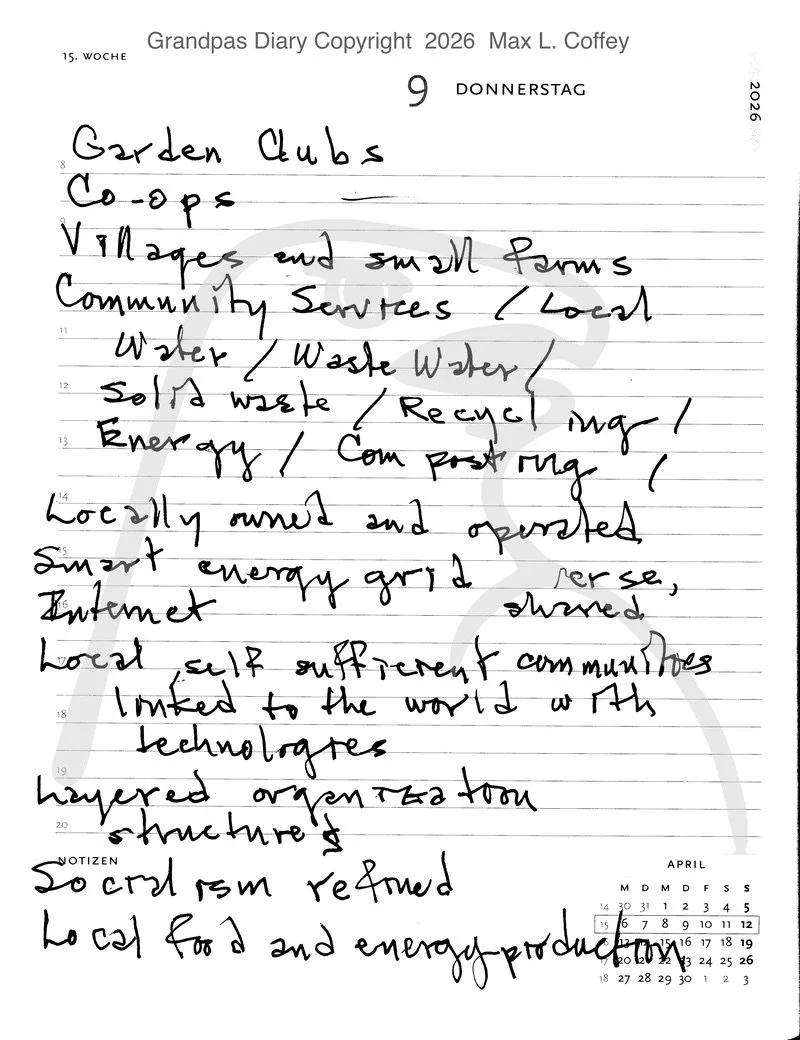 Grandpas Diary Copyright 2026 Max L. Coffey
15. WOCHE
9 DONNERSTAG
2026
Garden Clubs
8
Co-ops
9
Villages and small farms
Community Services / Local
11
Water / Waste Water /
12
Solid waste / Recycling /
13
Energy / Composting /
14
Locally owned and operated
15
Smart energy grid
16
Internet shared
17
Local, self sufficient communities
18
linked to the world with
technologies
19
Layered organization
20
structures
NOTIZEN
Socialism refined
Local food and energy production
APRIL
M D M D F S S
14 30 31 1 2 3 4 5
15 6 7 8 9 10 11 12
13 15 16 17 18 19
20 21 22 23 24 25 26
18 27 28 29 30 1 2 3